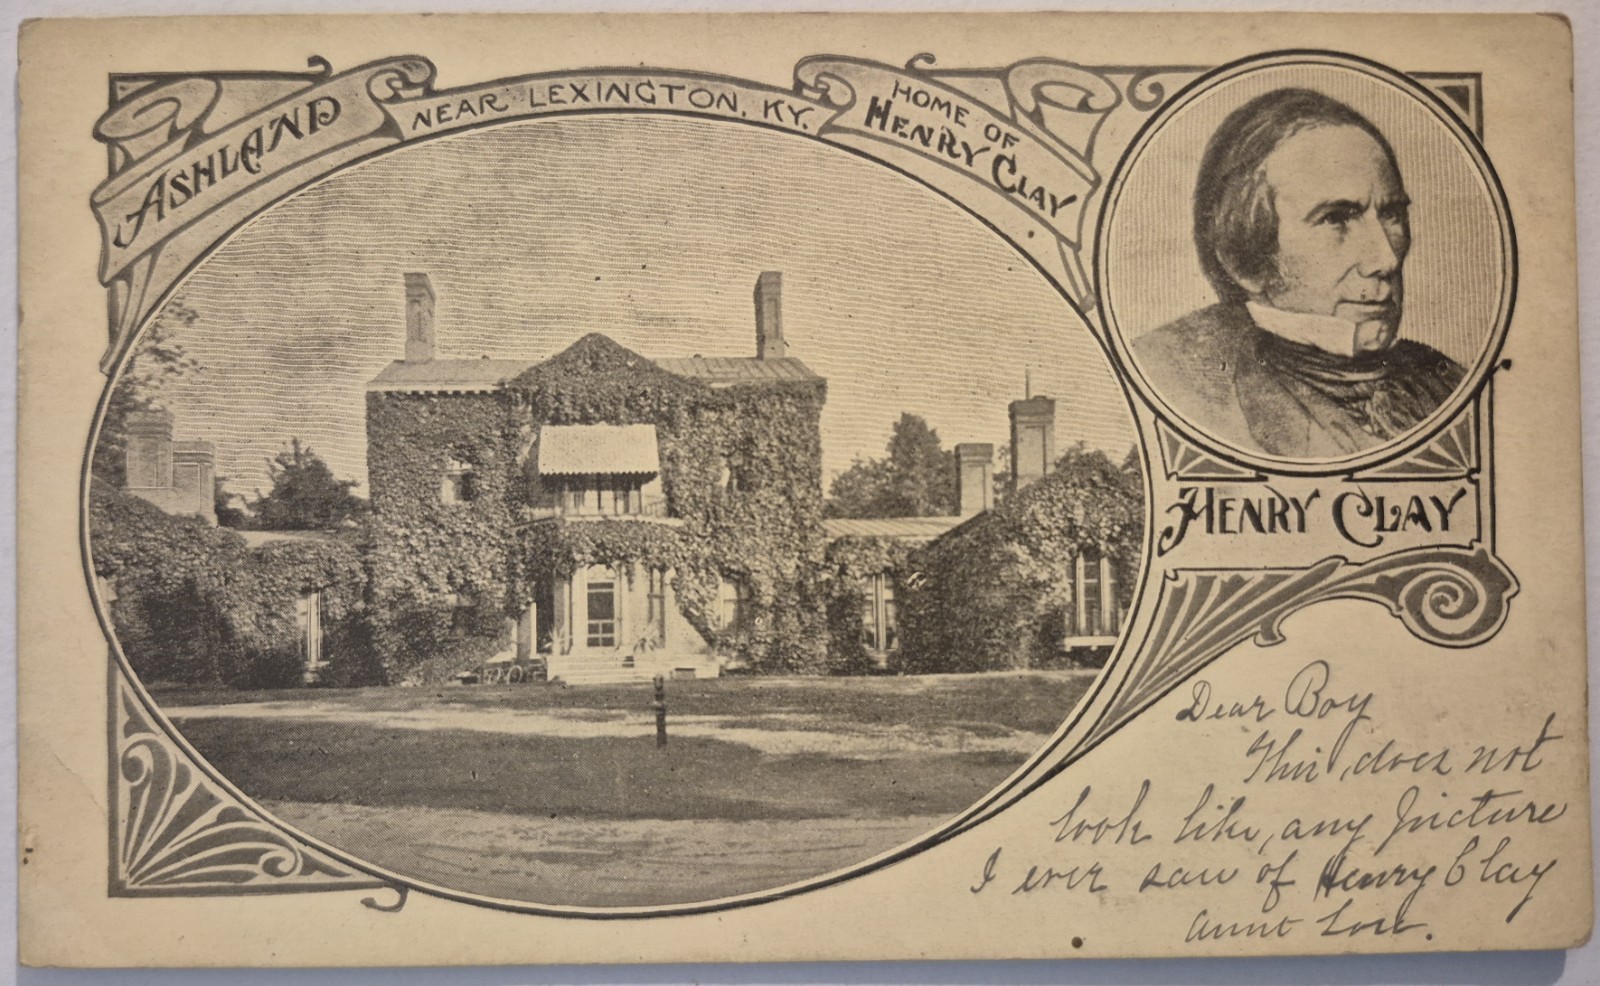 ASHLAND
NEAR LEXINGTON, KY.
HOME OF
HENRY CLAY
HENRY CLAY
Dear Boy
This, does not
look like, any picture
I ever saw of Henry Clay
Aunt